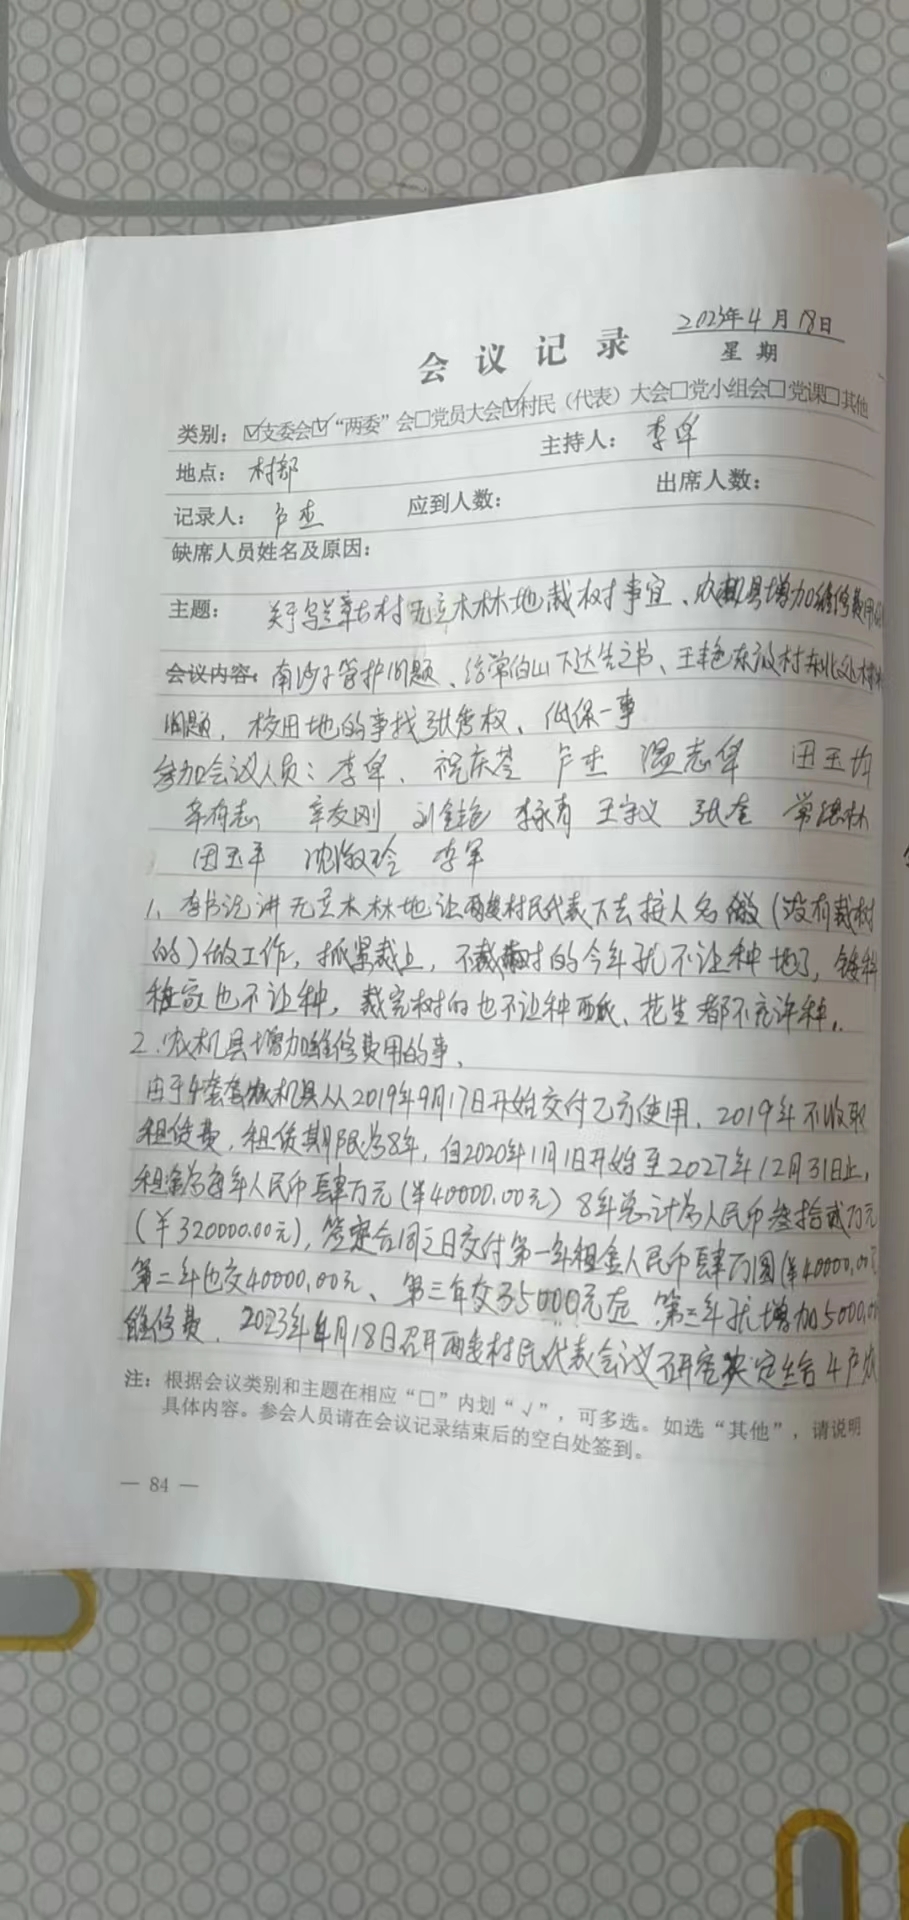 2023年4月18日
会 议 记 录
星 期
类别：☑支委会☑“两委”会□党员大会☑村民（代表）大会□党小组会□党课□其他
地点： 村部 主持人： 李
记录人： 卢杰 应到人数： 出席人数：
缺席人员姓名及原因：
主题： 关于乌兰章古村无立木林地栽树事宜、农机具增加维修费用
会议内容：南沙子管护问题、给常伯山下达告之书、王艳东放村东北
问题，校田地的事找张秀权、低保一事
参加会议人员：李 、祝庆 卢杰 温志 田玉均
辛有志 辛友刚 刘 艳 李永有 王守义 张奎 常 林
田玉平 沈淑玲 李军
1、李书记讲无立木林地让两委村民代表下去按人名做（没有栽树
的）做工作，抓紧栽上，不栽树的今年就不让种地了，
也不让种，栽完树的也不让种 、花生都不允许种。
2、农机具增加维修费用的事、
由于4套 农机具从2019年9月17日开始交付乙方使用，2019年不收取
租赁费，租赁期限为8年，自2020年1月1日开始至2027年12月31日止，
租金为每年人民币肆万元（￥40000.00元）8年总计为人民币叁拾贰万元
（￥320000.00元），签定合同之日交付第一年租金人民币肆万圆（￥40000.00
第二年也交40000.00元、第三年交35000元 第三年就增加5000.00
维修费，2023年4月18日召开两委村民代表会议研究决定给4户农
注：根据会议类别和主题在相应“□”内划“√”，可多选。如选“其他”，请说明
具体内容。参会人员请在会议记录结束后的空白处签到。
— 84 —